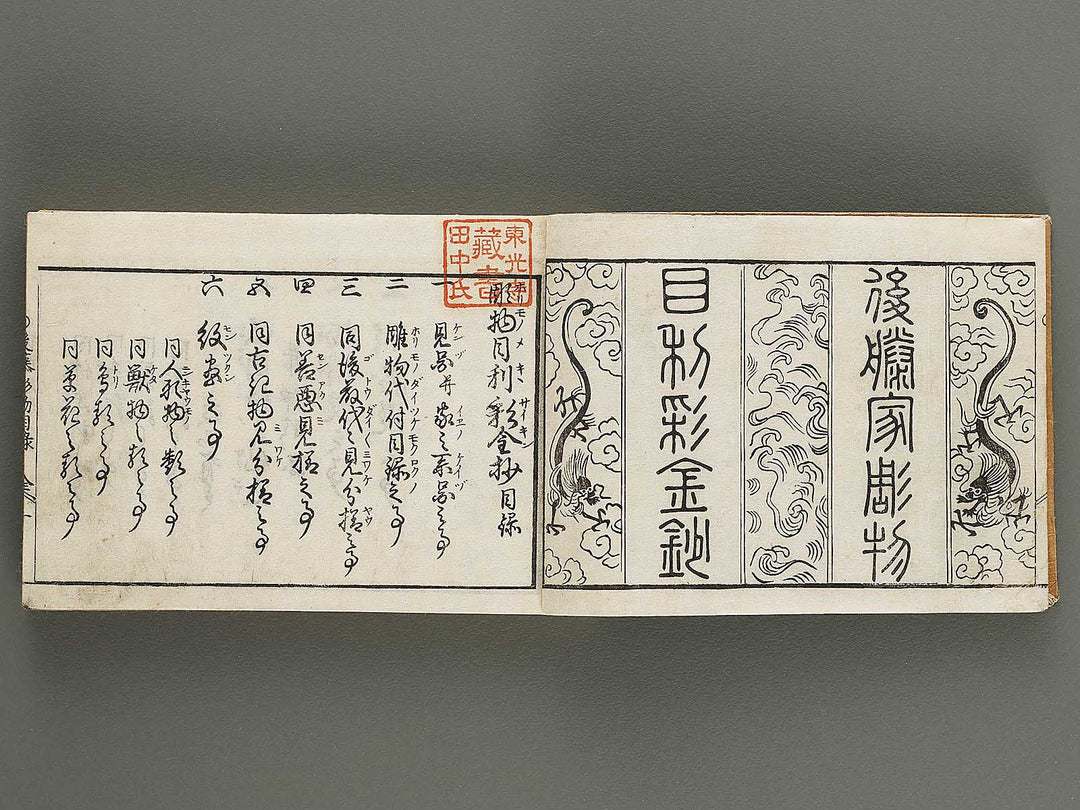 後藤家彫物
目利彩金鈔
彫物目利彩金抄目録
一 見出并家之系図之事
二 雕物代付目録之事
三 同後藤代々見分様之事
四 同善悪見様之事
五 同古作物見分様之事
六 紋尽之事
同人形物之類之事
同獣物之類之事
同鳥類之事
同草花之類之事
東光
蔵書
田中氏